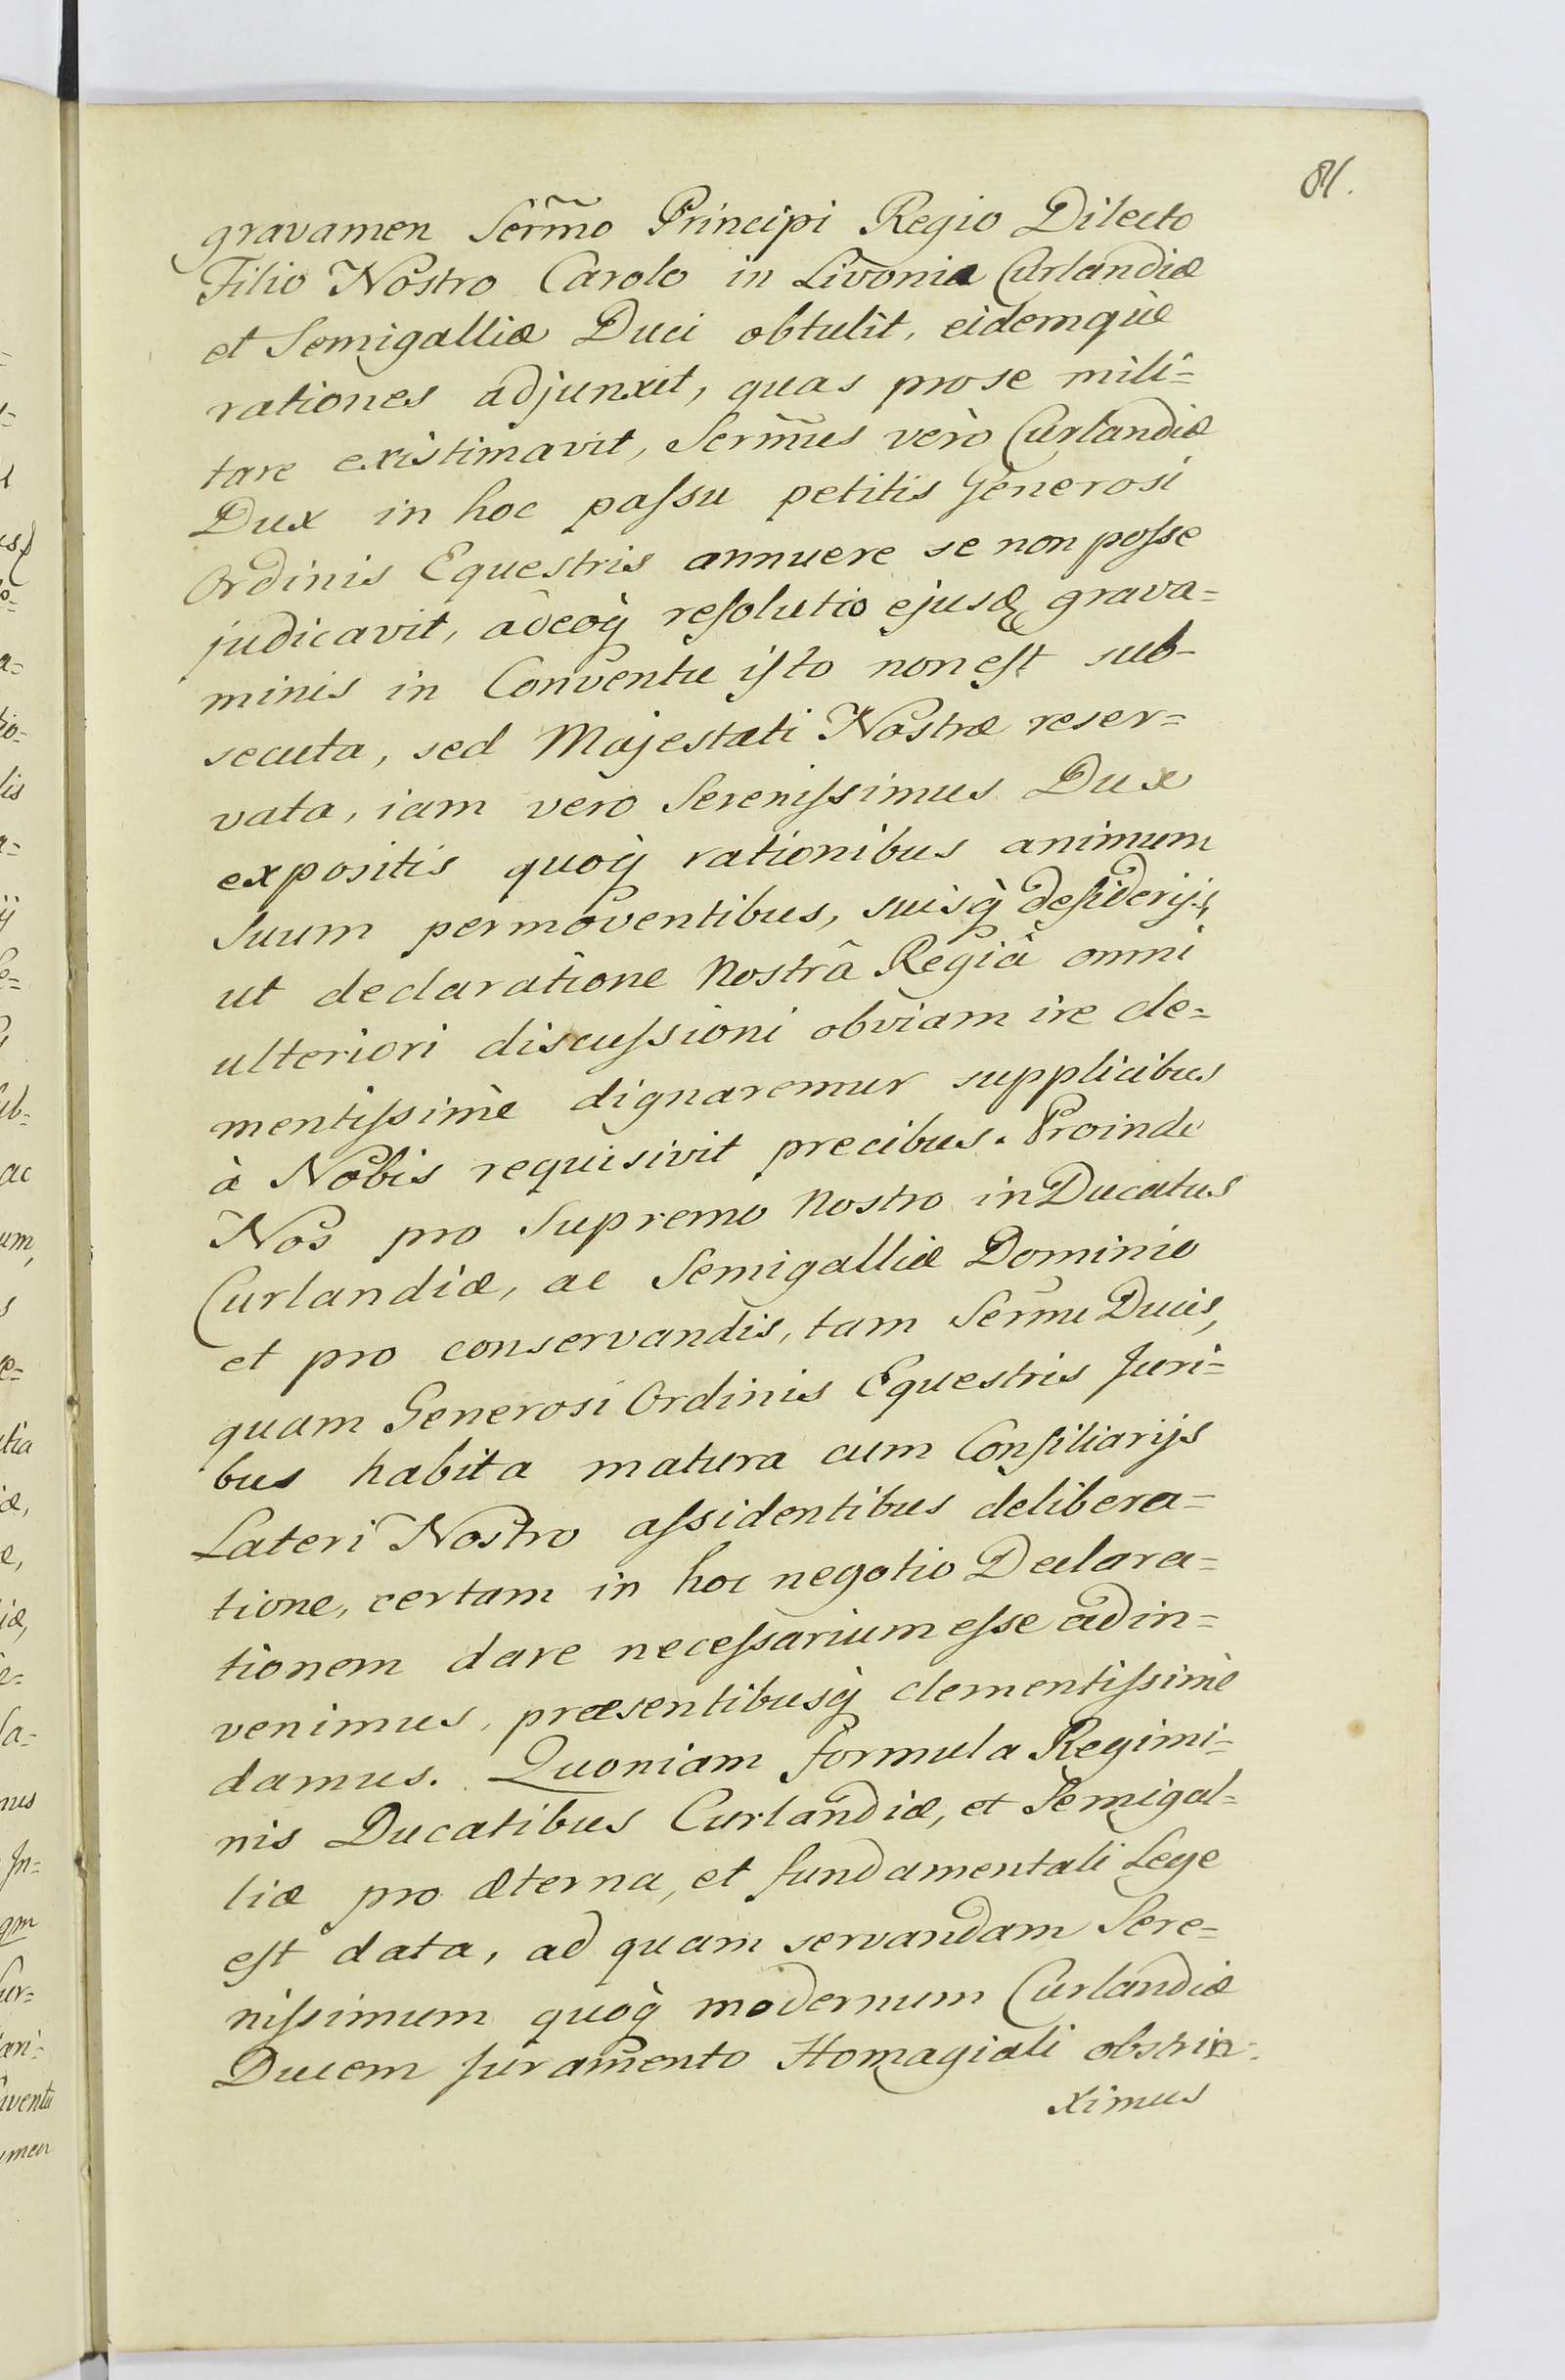 81.
gravamen Sermo Principi Regio Dilecto
Filio Nostro Carolo in Livonia Curlandiæ
et Semigalliæ Duci obtulit, eidemquè
rationes adjunxit, quas pro se mili=
tare existimavit, Sermus verò Curlandiæ
Dux in hoc passu petitis Generosi
Ordinis Equestris annuere se non posse
judicavit, adeoq̀ resolutio ejusd grava=
minis in Conventu isto non est sub-
secuta, sed Majestati Nostræ reser=
vata, iam vero Serenissimus Dux
expositis quoq̀ rationibus animum
suum permoventibus, suisq̀ desiderijs,
ut declaratione Nostrâ Regiâ omni
ulteriori discussioni obviam ire cle=
mentissimè dignaremur supplicibus
à Nobis requisivit precibus. Proinde
Nos pro Supremo Nostro in Ducatus
Curlandiæ, ac Semigalliæ Dominio
et pro conservandis, tam Sermi Ducis,
quam Generosi Ordinis Equestris Juri=
bus habita matura cum Consiliarijs
Lateri Nostro assidentibus delibera=
tione, certam in hoc negotio Declara=
tionem dare necessarium esse adin=
venimus, præsentibusq̀ clementissimè
damus. Quoniam formula Regimi=
nis Ducatibus Curlandiæ, et Semigal=
liæ pro æterna, et fundamentali Lege
est data, ad quam servandam Sere=
nissimum quoq̀ modernum Curlandiæ
Ducem Juramento Homagiali obstrin=
ximus